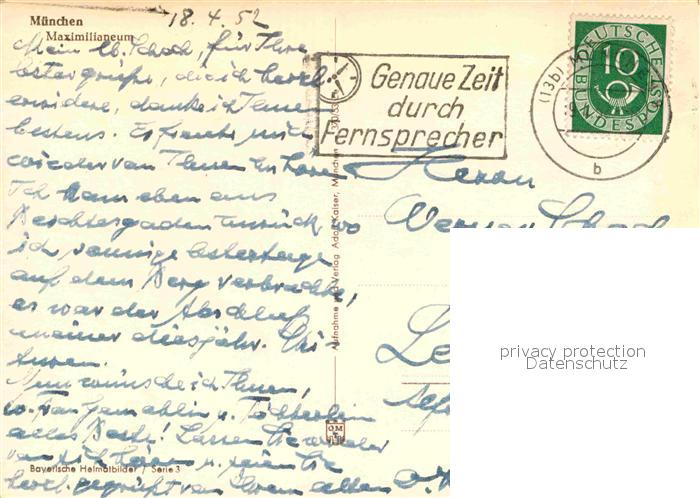 München
Maximilianeum
18.4.52
Mein lb. Schoch, für Ihre
Ostergrüße, die ich herzl.
erwidere, danke ich Ihnen
bestens. Es freute mich
wieder von Ihnen zu hören.
Ich kam eben aus
Berchtesgaden zurück, wo
ich sonnige Ostertage
auf dem Berg verbrachte,
es war der Abschluß
meiner diesjähr. Ski
touren.
Nun wünsche ich Ihnen,
Frau Gemahlin u. Töchterlein
alles Beste! Lassen Sie wieder
von sich hören u. seien Sie
herzl. gegrüßt von Ihrem alten
Bayerische Heimatbilder / Serie 3
Aufnahme und Verlag Adolf Kaiser, München
OM
Genaue Zeit
durch
Fernsprecher
(13b)
b
DEUTSCHE
BUNDESPOST
10
Herrn
Werner Schoch
privacy protection
Datenschutz